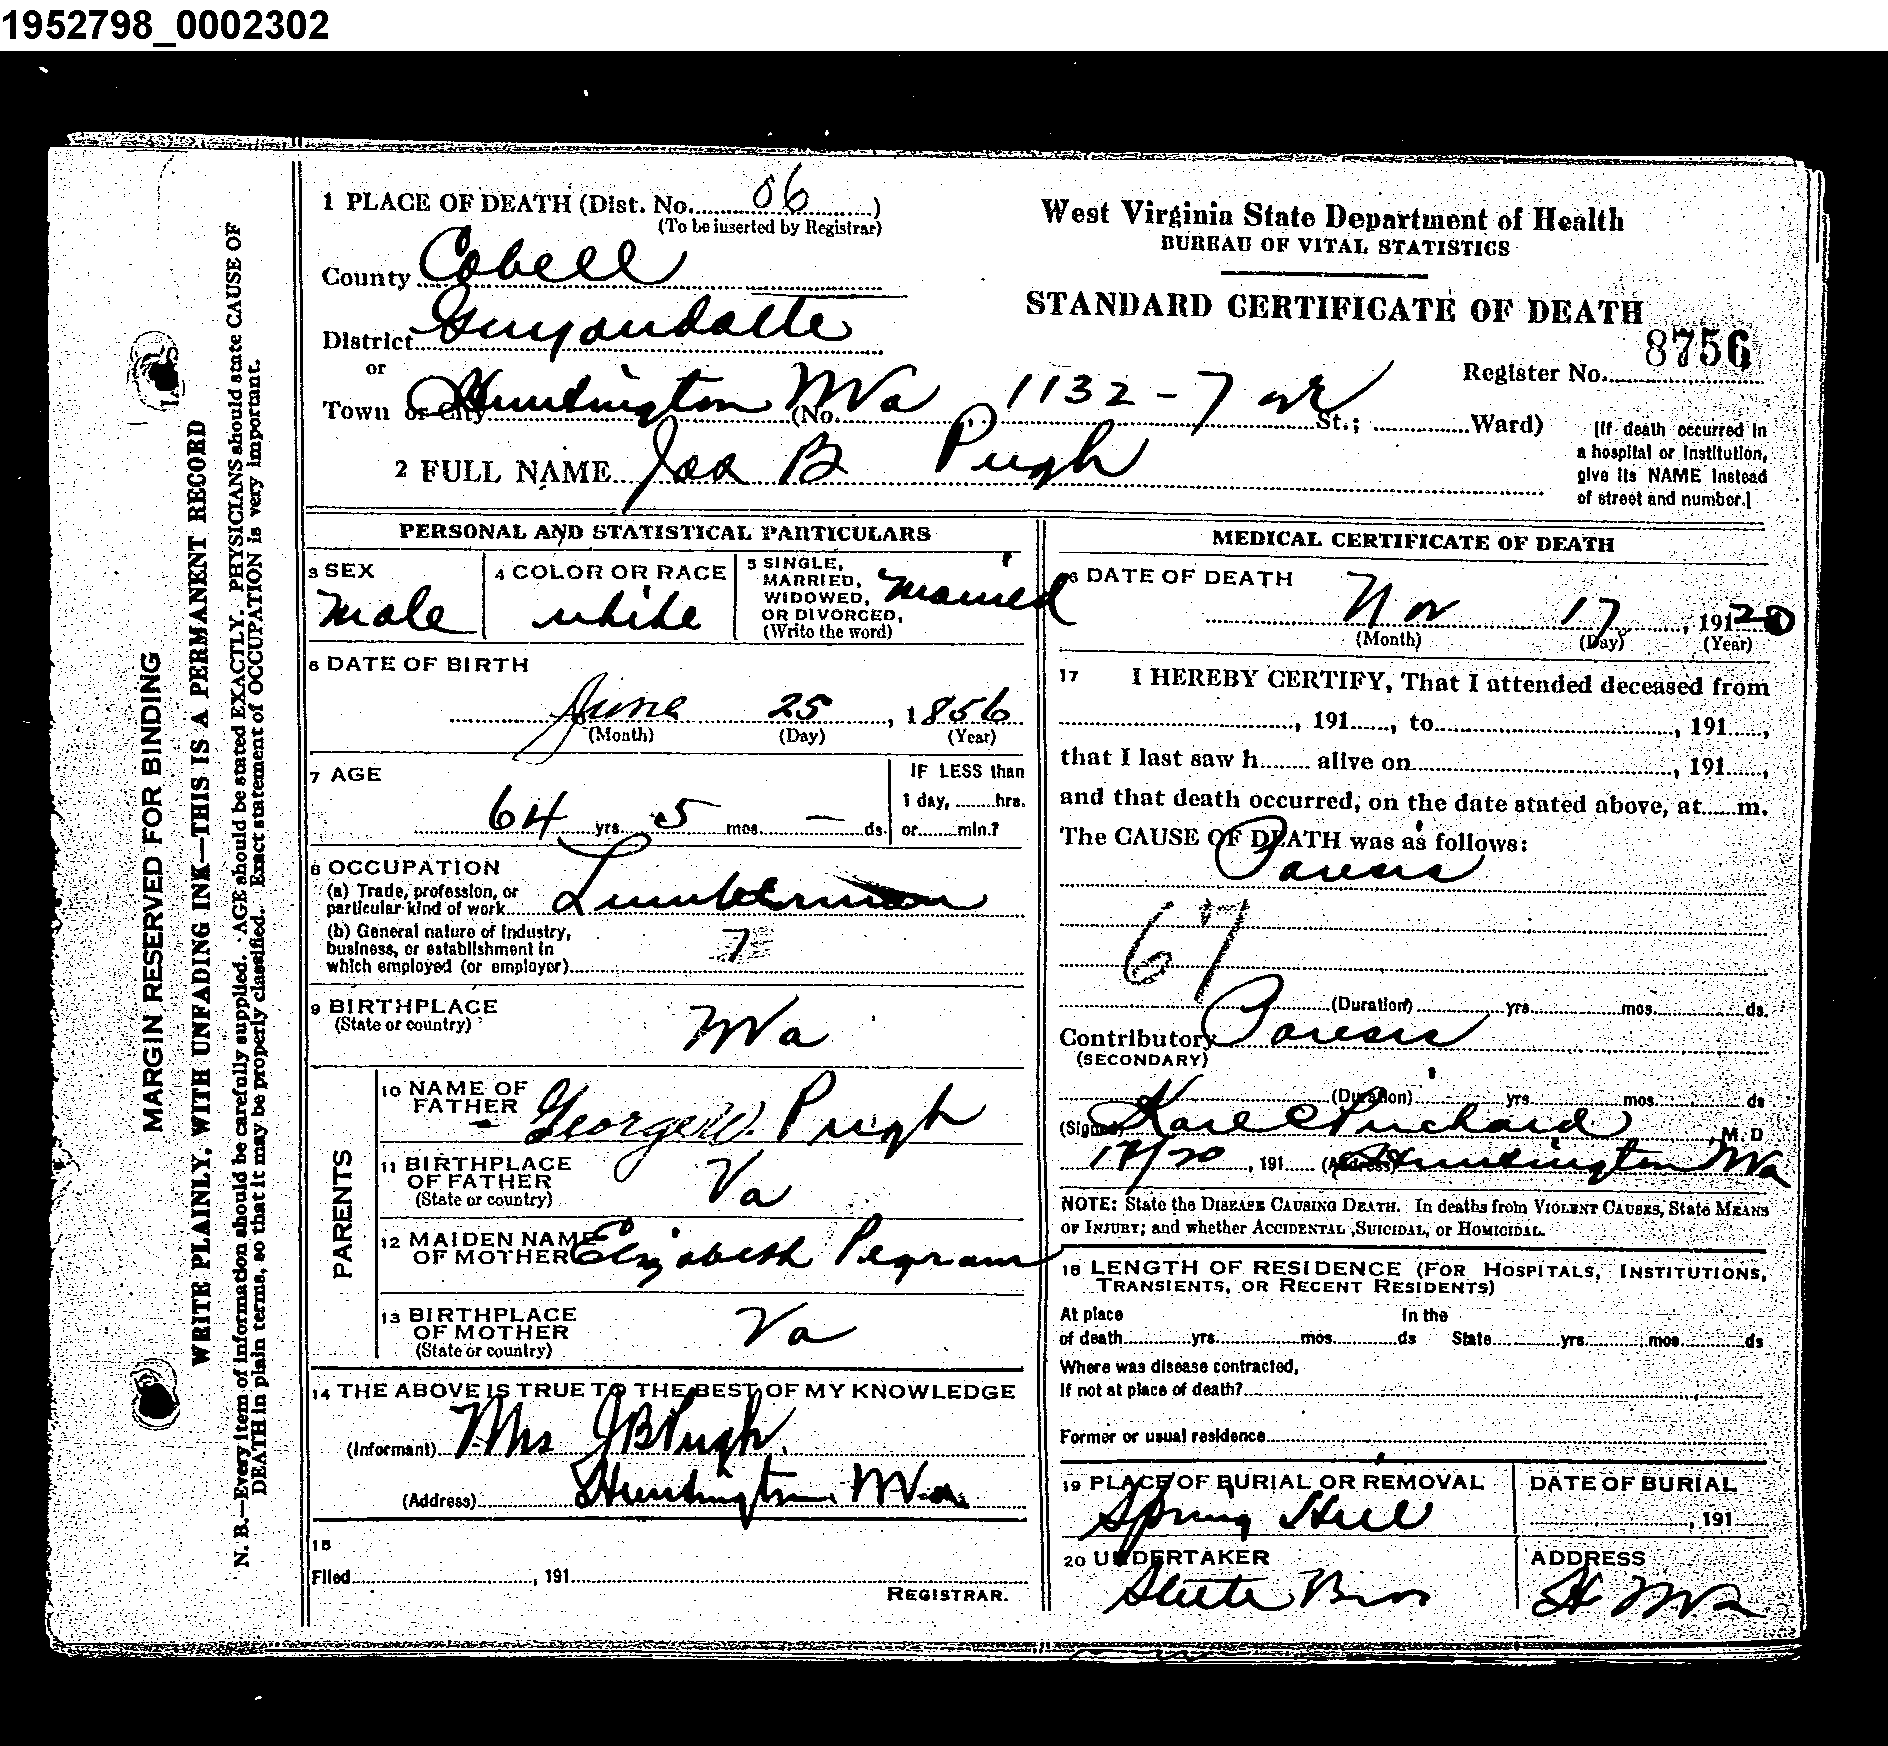 1952798_0002302
1 PLACE OF DEATH (Dist. No. 06 )
(To be inserted by Registrar)
County Cabell
District Guyandotte
or
Town or City Huntington WVa (No. 1132 - 7 ave St.; Ward)
2 FULL NAME Jas B Pugh
West Virginia State Department of Health
BUREAU OF VITAL STATISTICS
STANDARD CERTIFICATE OF DEATH
8756
Register No.
[If death occurred in
a hospital or institution,
give its NAME instead
of street and number.]
MARGIN RESERVED FOR BINDING
WRITE PLAINLY, WITH UNFADING INK—THIS IS A PERMANENT RECORD
N. B.—Every item of information should be carefully supplied. AGE should be stated EXACTLY. PHYSICIANS should state CAUSE OF
DEATH in plain terms, so that it may be properly classified. Exact statement of OCCUPATION is very important.
PERSONAL AND STATISTICAL PARTICULARS
3 SEX
Male
4 COLOR OR RACE
white
5 SINGLE,
MARRIED,
WIDOWED,
OR DIVORCED,
(Write the word)
Married
6 DATE OF BIRTH
June 25, 1856
(Month) (Day) (Year)
7 AGE
64 yrs. 5 mos. — ds.
IF LESS than
1 day, hrs.
or min.?
8 OCCUPATION
(a) Trade, profession, or
particular kind of work Lumberman
(b) General nature of industry,
business, or establishment in
which employed (or employer)
7
9 BIRTHPLACE
(State or country)
WVa
PARENTS
10 NAME OF
FATHER
George W. Pugh
11 BIRTHPLACE
OF FATHER
(State or country)
Va
12 MAIDEN NAME
OF MOTHER Elizabeth Pegram
13 BIRTHPLACE
OF MOTHER
(State or country)
Va
14 THE ABOVE IS TRUE TO THE BEST OF MY KNOWLEDGE
(Informant) Mrs J B Pugh.
(Address) Huntington W.Va.
15
Filed , 191
REGISTRAR.
MEDICAL CERTIFICATE OF DEATH
16 DATE OF DEATH
Nov 17, 1920
(Month) (Day) (Year)
17 I HEREBY CERTIFY, That I attended deceased from
, 191 , to , 191 ,
that I last saw h alive on , 191 ,
and that death occurred, on the date stated above, at m.
The CAUSE OF DEATH was as follows:
Paresis
67
(Duration) yrs. mos. ds.
Contributory Paresis
(SECONDARY)
(Duration) yrs. mos. ds
(Signed) Karl C Prichard, M. D
, 191 (Address) Huntington WVa
NOTE: State the DISEASE CAUSING DEATH. In deaths from VIOLENT CAUSES, State MEANS
OF INJURY; and whether ACCIDENTAL ,SUICIDAL, or HOMICIDAL.
18 LENGTH OF RESIDENCE (FOR HOSPITALS, INSTITUTIONS,
TRANSIENTS, OR RECENT RESIDENTS)
At place In the
of death yrs. mos. ds State yrs. mos. ds
Where was disease contracted,
If not at place of death?
Former or usual residence
19 PLACE OF BURIAL OR REMOVAL
Spring Hill
DATE OF BURIAL
, 191
20 UNDERTAKER
Bros
ADDRESS
H WVa